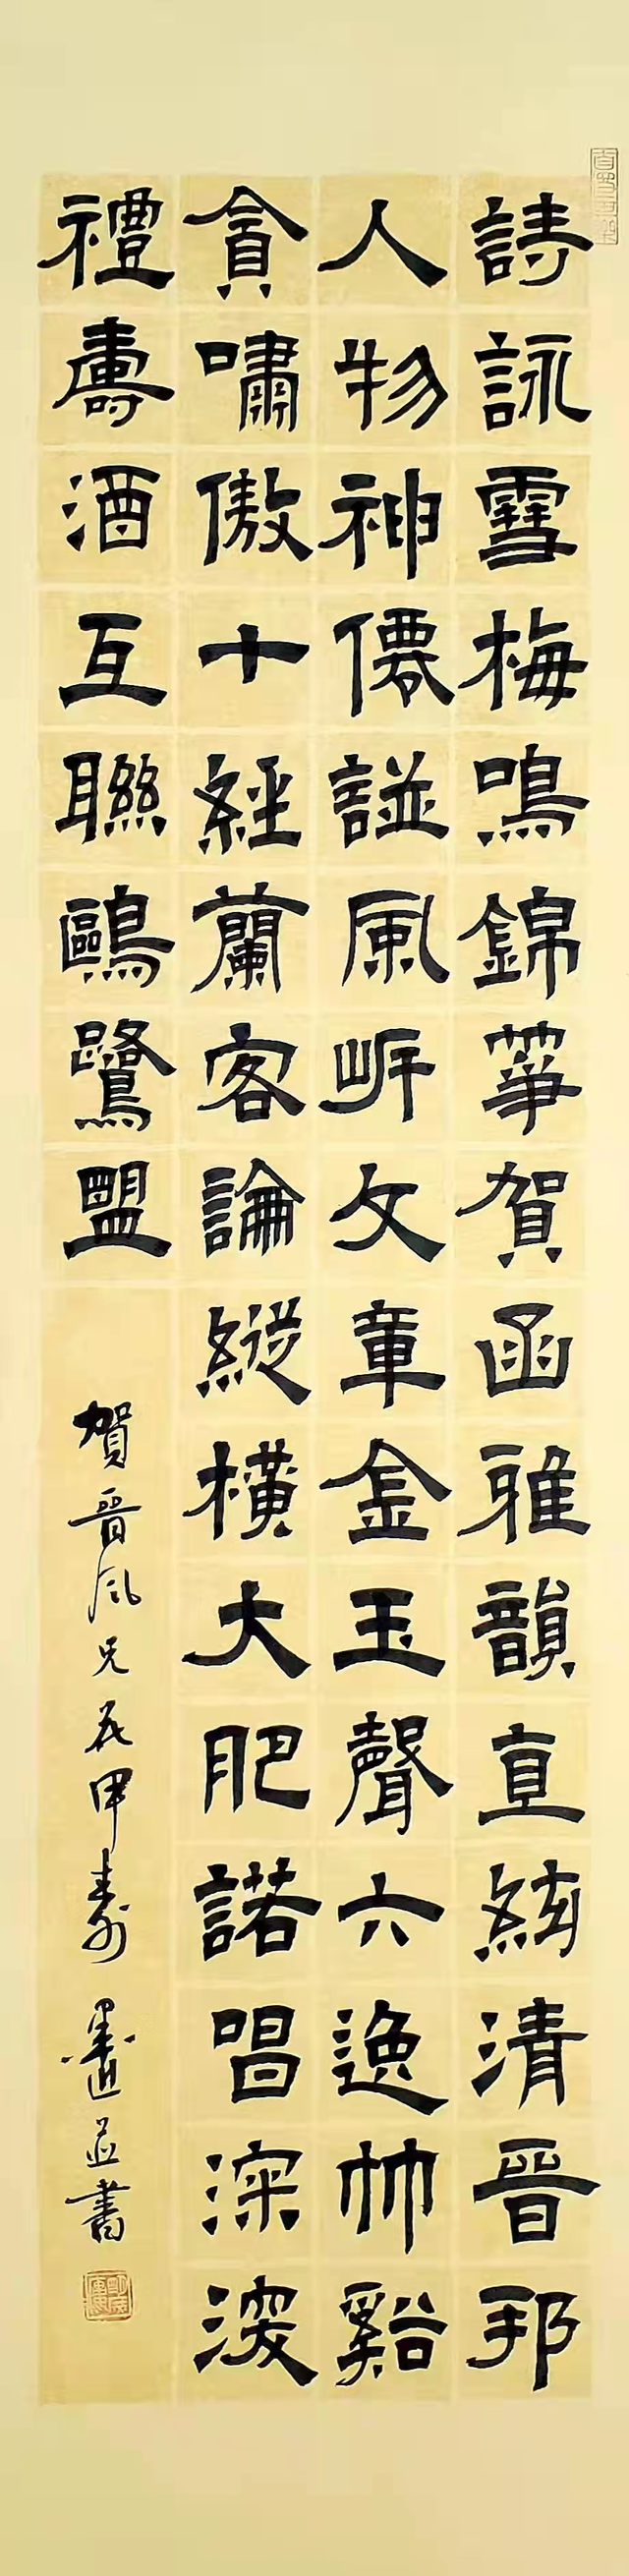 詩詠雪梅鳴錦箏賀函雅韻直絃清晉邦
人物神僊譜風岸文章金玉聲六逸竹谿
貪嘯傲十經蘭客論縱橫大肥諾唱深深
禮壽酒互聯鷗鷺盟
賀晉風兄花甲壽 並書